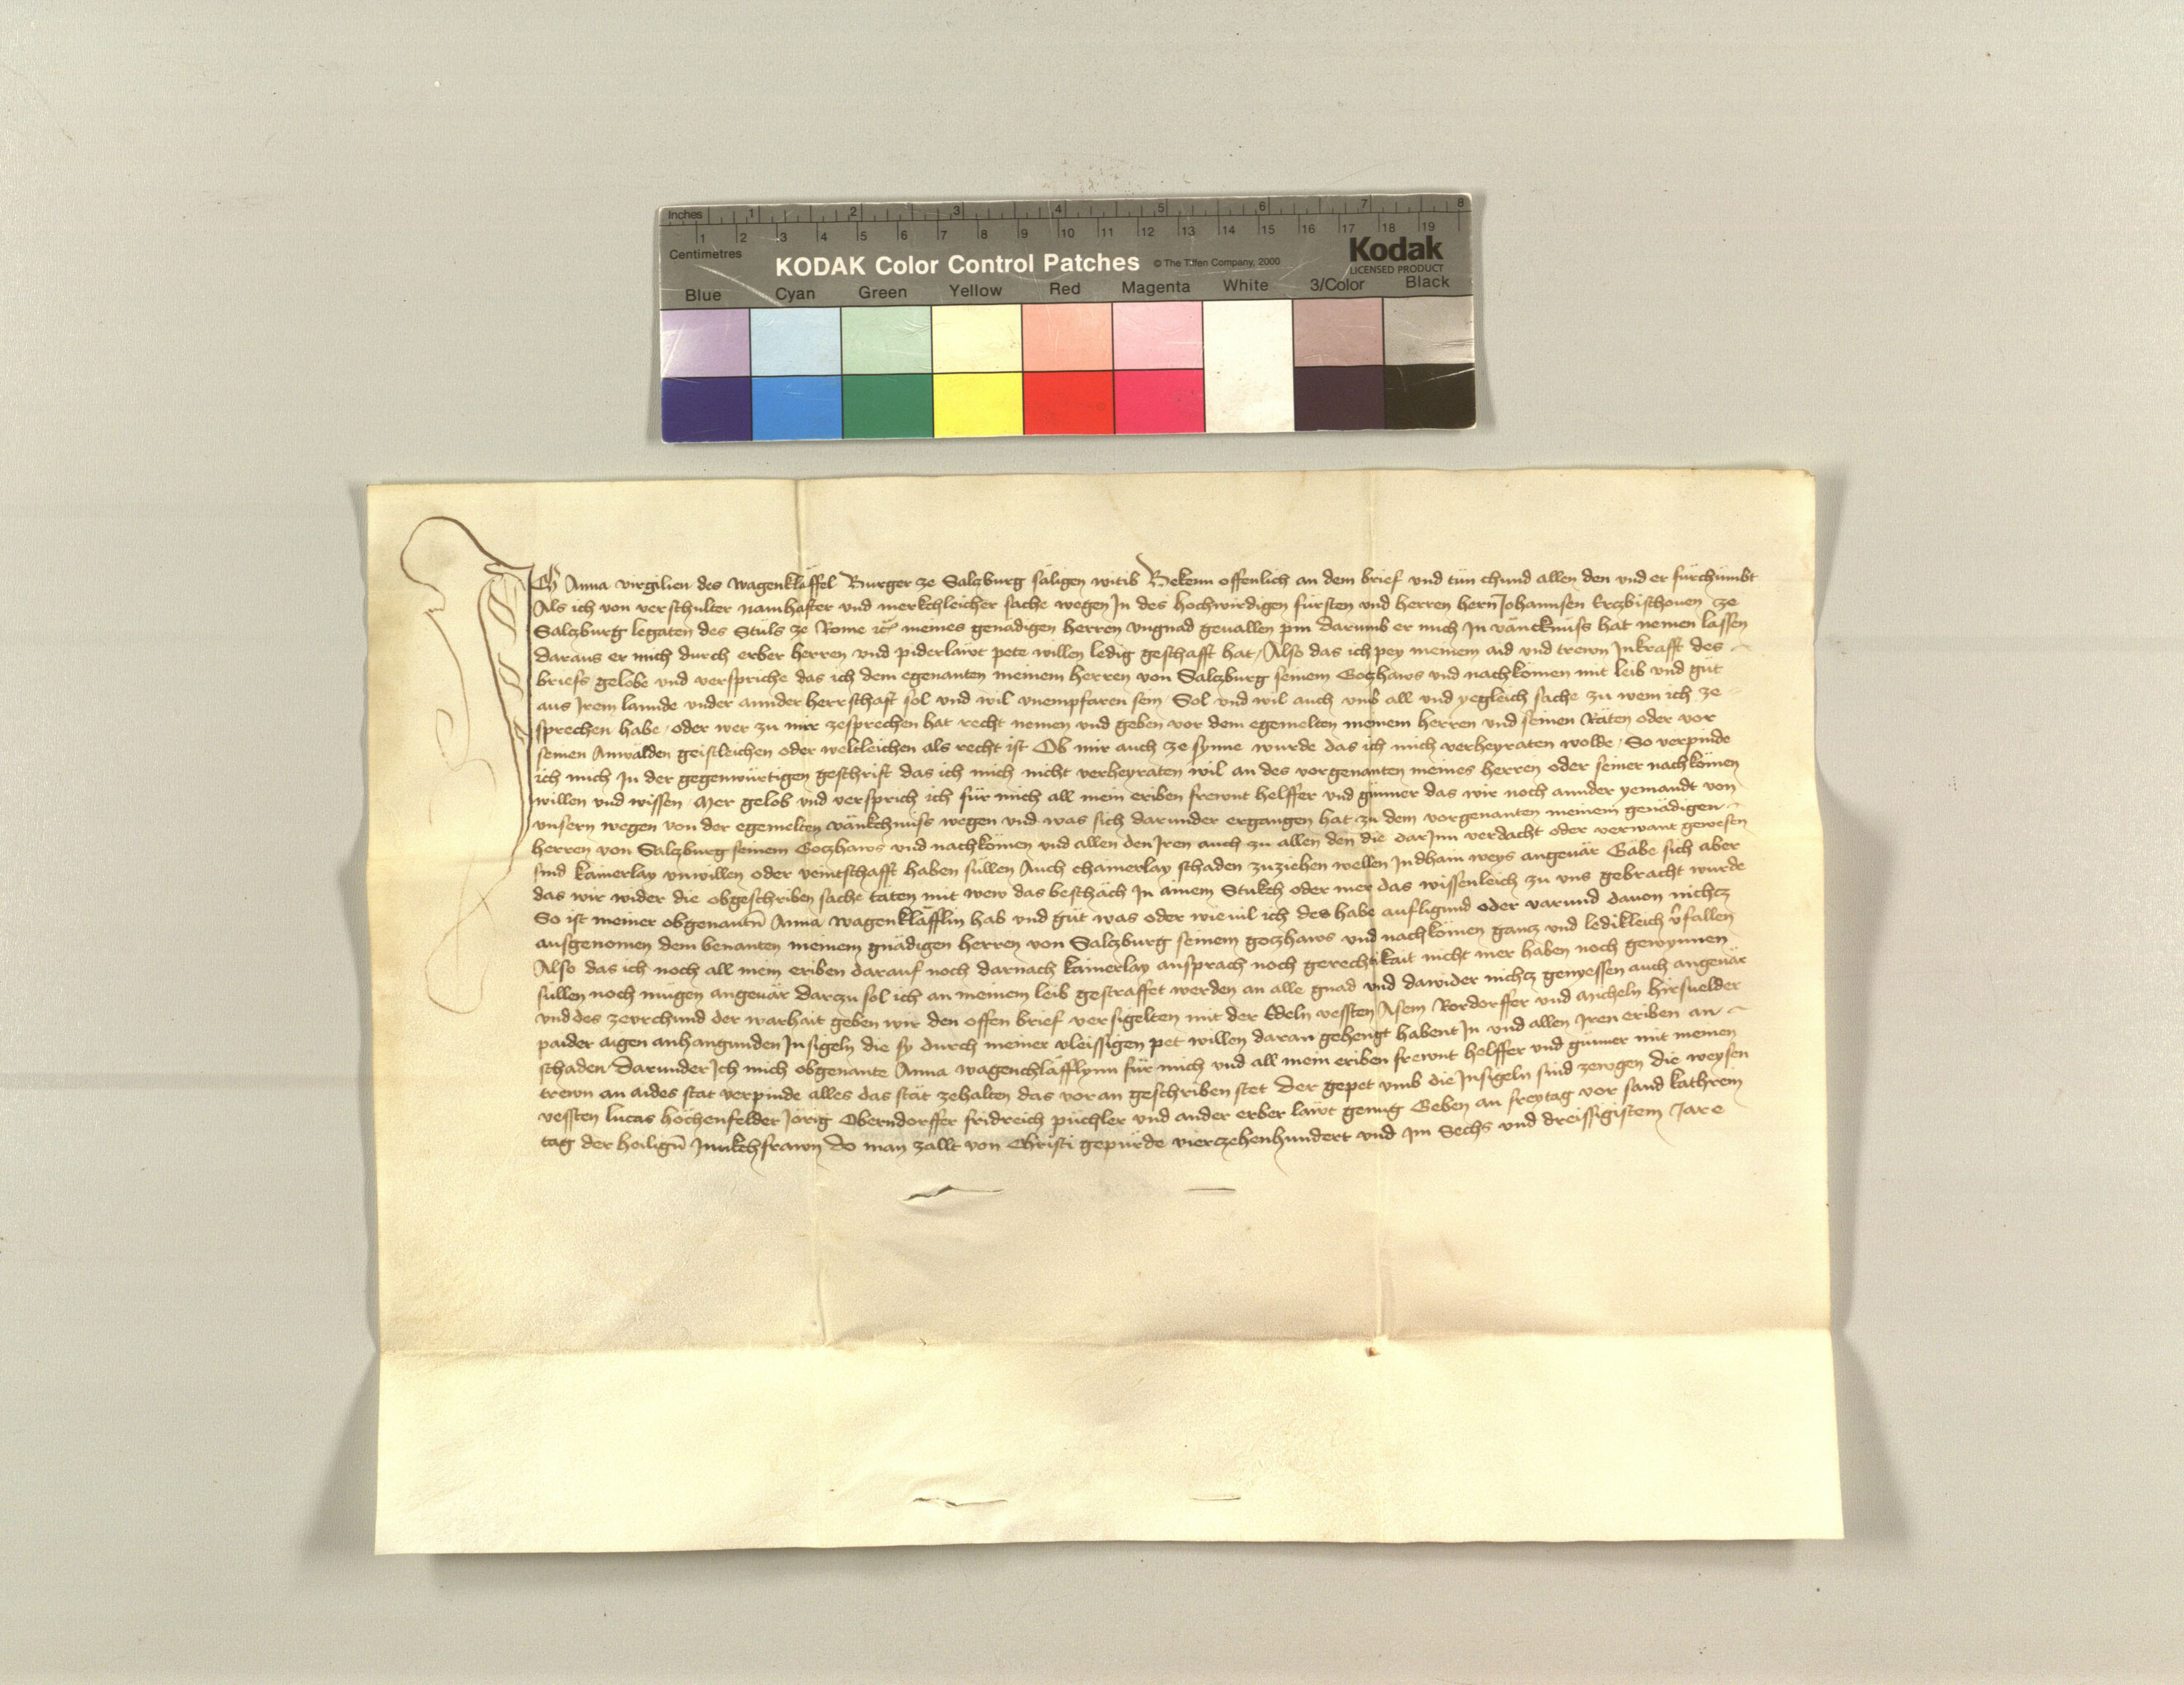 Inches 1 2 3 4 5 6 7 8
1 2 3 4 5 6 7 8 9 10 11 12 13 14 15 16 17 18 19
Centimetres
KODAK Color Control Patches © The Tiffen Company, 2000 Kodak
LICENSED PRODUCT
Blue Cyan Green Yellow Red Magenta White 3/Color Black
Ich Anna virgilien des wagenkläffel Burger ze Salczburg säligen witib Bekenn offenlich an dem brief vnd tün chund allen den vnd er fürchümbt
Als ich von verschulter namhafter vnd merkchleicher sache wegen In des hochwirdigen fürsten vnd herren hern Johannsen Erczbischouen ze
Salczburg legaten des Stüls ze Rome meines genadigen herren vngnad geuallen pin darumb er mich In vänckhnüss hat nemen lassen
daraus er mich durch erber herren vnd piderläwt pete willen ledig geschafft hat, Also das ich pey meinem aid vnd trewn Inkrafft des
briefs gelobe vnd verspriche das ich dem egenanten meinem herren von Salczburg seinem Goczhaws vnd nachkömen mit leib vnd güt
aus Irem lannde vnder annder herrschaft sol vnd wil vnempfaren sein Sol vnd wil auch vmb all vnd yegleich sache zu wem ich ze
sprechen habe, oder wer zu mir zesprechen hat recht nemen vnd geben vor dem egemelten meinem herren vnd seinen Räten oder vor
seinen Anwälden geistleichen oder weltleichen als recht ist Ob mir auch ze synne wurde das ich mich verheyraten wolde, So verpinde
ich mich In der gegenwürtigen geschrift das ich mich nicht verheyraten wil an des vorgenanten meines herren oder seiner nachkömen
willen vnd wissen Mer gelob vnd versprich ich für mich all mein eriben frewnt helffer vnd günner das wir noch annder yemandt von
vnsern wegen von der egemelten vänkchnüss wegen vnd was sich darunder ergangen hat zu dem vorgenanten meinem genädigen
herren von Salczburg seinem Goczhaws vnd nachkömen vnd allen den Iren auch zu allen den die darInn verdacht oder verwant gewesen
sind kainerlay vnwillen oder veintschafft haben süllen Auch chainerlay schaden zuziehen wellen Indhain weys angeuär Gäbe sich aber
das wir wider die obgeschriben sache täten mit wew das beschäch In ainem Stukch oder mer das wissenleich zu vns gebracht wurde
So ist meiner obgenantn Anna wagenkläfflin hab vnd güt was oder wieuil ich des habe aufligund oder varund dauon nichcz
ausgenomen dem benanten meinem gnädigen herren von Salczburg seinem goczhaws vnd nachkömen gancz vnd ledikleich vfallen
Also das ich noch all mein eriben darauf noch darnach kainerlay ansprach noch gerechtikait nicht mer haben noch gewynnen
süllen noch mügen angeuär darczu sol ich an meinem leib gestraffet werden an alle gnad vnd dawider nichcz genyessen auch angeuär
vnd des zevrchund der warhait geben wir den offen brief versigelten mit der Edeln vessten Asem Rordorffer vnd Micheln hirsuelder
paider aigen anhangunden Insigeln die sy durch meiner vleissigen pet willen daran gehengt habent In vnd allen Iren eriben an
schaden, Darunder Ich mich obgenante Anna wagenchläfflynn für mich vnd all mein eriben frewnt helffer vnd günner mit meinen
trewn an aides stat verpinde alles das stät zehalten das voran geschriben stet Der gepet vmb die Insigeln sind zewgen die weysen
vessten lucas höchenfelder Jörig Oberndorffer fridreich püchler vnd ander erber läwt genug Geben an freytag vor sand kathrein
tag der heilign Junkchfrawn do man zallt von Christi gepürde vierczehenhundert vnd Im Sechs vnd dreissigistem Jare